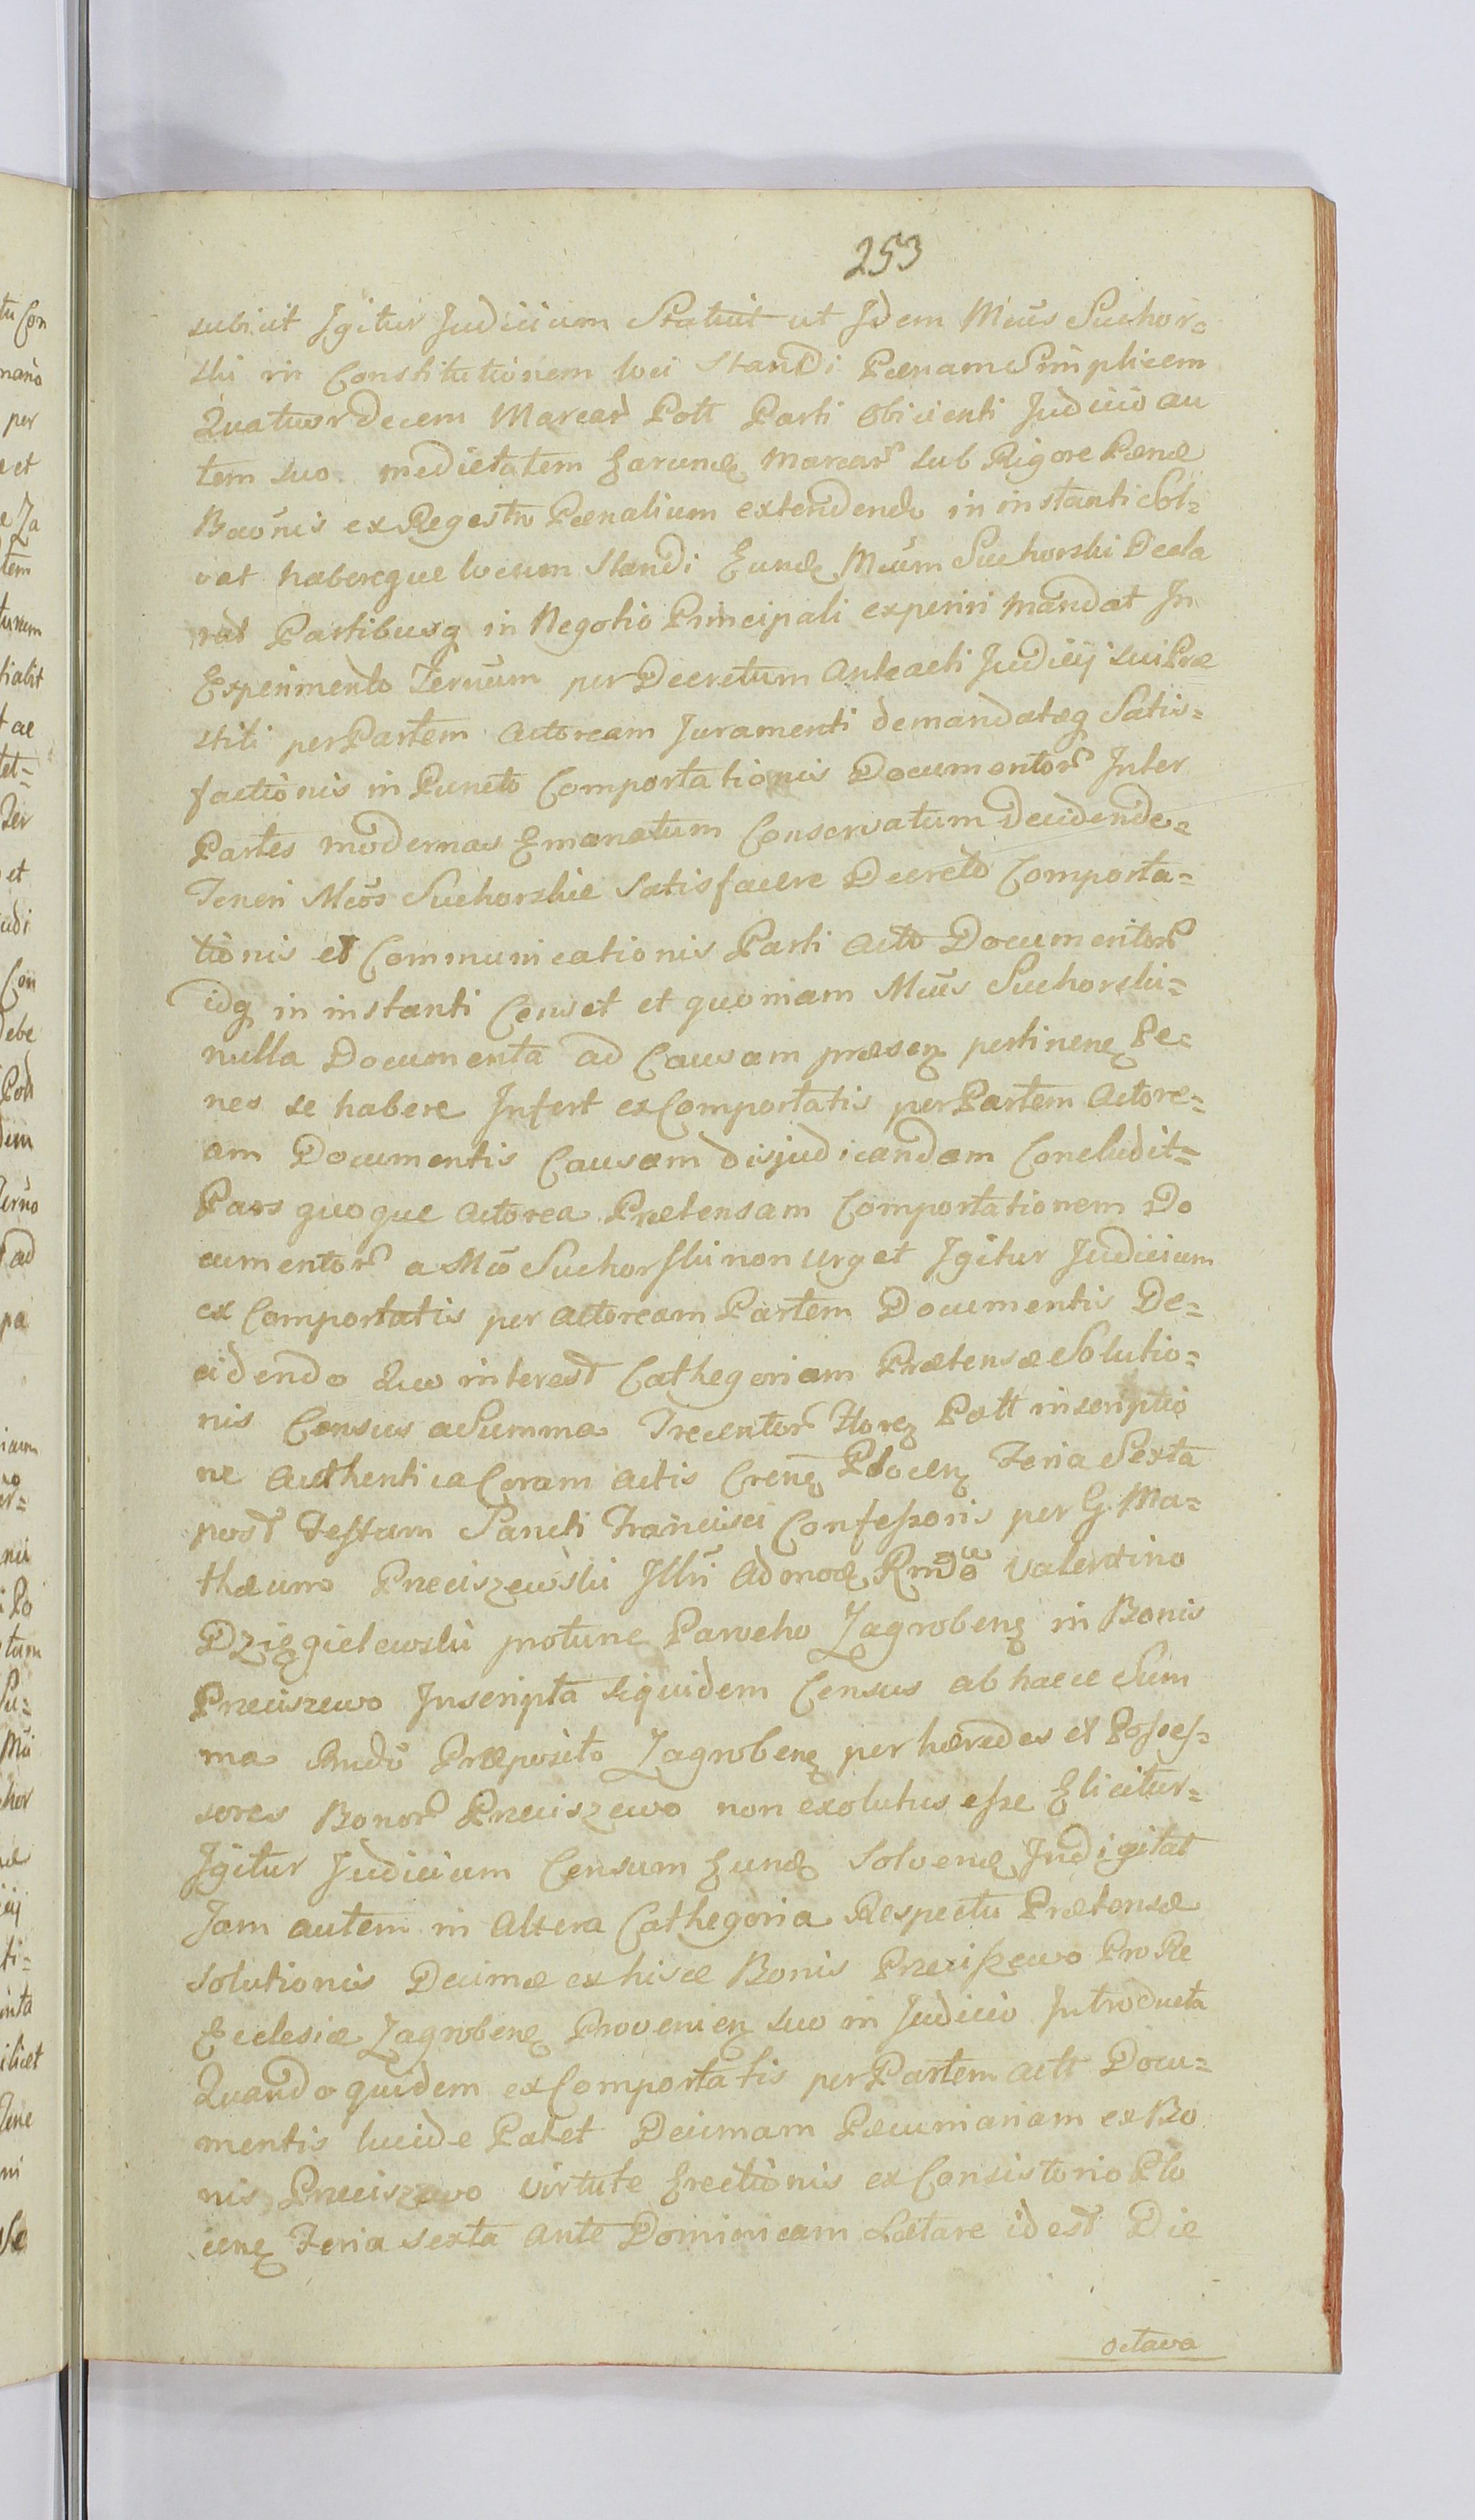 253
subiit Igitur Judicium Statuit ut Idem Mcūs Suchor=
ski in Constitutionem loci Standi Pœnam Simplicem
Quatuordecem Marcar̃ Poll Parti Obicienti Judicio au
tem suo medietatem Earunđ Marcar̃ sub Rigore Pœnæ
Baōnis ex Regestro Pœnalium extendendo in instanti Sol=
vat habereque locum Standi Eund Mcūm Suchorski Decla
rat Partibusq in Negotio Principali experiri mandat In
Experimento Terūm per Decretum Anteacti Judicij sui Præ
stiti per Partem Actoream Juramenti demandatæq Satis=
factionis in Puncto Comportationis Documentor̃ Inter
Partes modernas Emanatum Conservatum Decidendo=
Teneri Mcōs Suchorskie Satisfacere Decreto Comporta=
tionis et Communicationis Parti Acto Documentor̃
idq in instanti Censet et quoniam Mcūs Suchorski=
nulla Documenta ad Causam præsen pertinen Pe=
nes se habere Infert ex Comportatis per Partem Actore=
am Documentis Causam disjudicandam Concludit=
Pars quoque Actorea Prætensam Comportationem Do
cumentor̃ a Mcō Suchorski non urget Igitur Judicium
ex Comportatis per Actoream Partem Documentis De=
cidendo Quo interest Cathegoriam Prætensæ Solutio=
nis Census a Summa Trecentor̃ Floren Poll inscriptio
ne Authentica Coram Actis Cren Plocen Feria Sexta
post Festum Sancti Francisci Confessoris per G. Ma=
thæum Preciszewski Illri Admod Rndō Valentino
Dzięgielewski protunc Parocho Zagroben in Bonis
Preciszewo Inscripta siquidem Census ab hacce Sum
ma Rndō Præposito Zagroben per hæredes et Posses=
sores Bonor̃ Preciszewo non exolutus esse Elicitur=
Igitur Judicium Censum Eund Solvend Indigitat
Jam autem in Altera Cathegoria Respectu Prætensæ
solutionis Decimæ ex hisce Bonis Preciszewo Pro Re
Ecclesiæ Zagroben Provenien suo in Judicio Introducta
Quandoquidem ex Comportatis per Partem Actt Docu=
mentis lucide Patet Decimam Pæcuniariam ex Bo
nis Preciszewo virtute Erectionis ex Consistorio Plo
cen Feria sexta ante Dominicam Lætare id est Die
octava